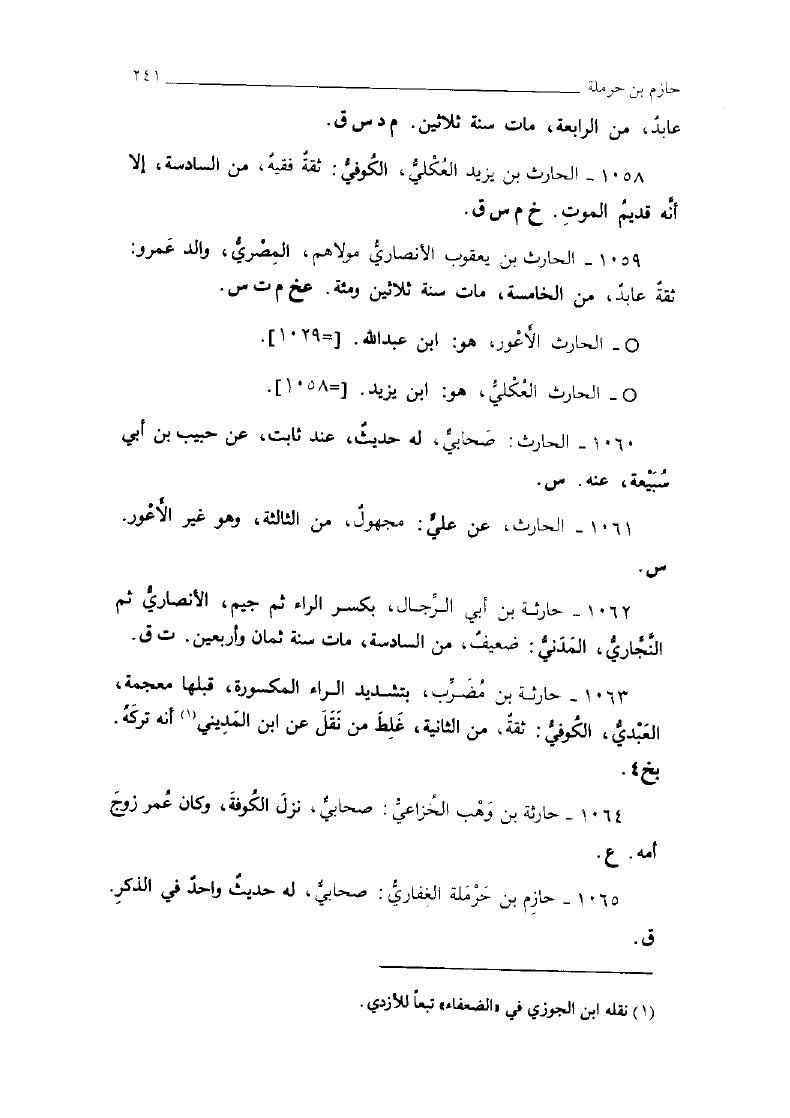 حازم بن حرملة ٢٤١
عابدٌ، من الرابعة، مات سنة ثلاثين. م د س ق.
١٠٥٨ ـ الحارث بن يزيد العُكْليُّ، الكُوفيُّ: ثقةٌ فقيهٌ، من السادسة، إلا
أنَّه قديمُ الموتِ. خ م س ق.
١٠٥٩ ـ الحارث بن يعقوب الأنصاريُّ مولاهم، المِصْريُّ، والد عَمرو:
ثقةٌ عابدٌ، من الخامسة، مات سنة ثلاثين ومئة. عخ م ت س.
○ ـ الحارث الأَعْور، هو: ابن عبدالله. [=١٠٢٩].
○ ـ الحارث العُكْليُّ، هو: ابن يزيد. [=١٠٥٨].
١٠٦٠ ـ الحارث: صَحابيٌّ، له حديثٌ، عند ثابت، عن حبيب بن أبي
سُبَيْعة، عنه. س.
١٠٦١ ـ الحارث، عن عليٍّ: مجهولٌ، من الثالثة، وهو غير الأَعْور.
س.
١٠٦٢ ـ حارثة بن أبي الرِّجال، بكسر الراء ثم جيم، الأنصاريُّ ثم
النَّجَّاريُّ، المَدَنيُّ: ضعيفٌ، من السادسة، مات سنة ثمان وأربعين. ت ق.
١٠٦٣ ـ حارثة بن مُضَرِّب، بتشديد الراء المكسورة، قبلها معجمة،
العَبْديُّ، الكُوفيُّ: ثقةٌ، من الثانية، غَلِطَ من نَقَلَ عن ابن المَدِيني(١) أنه تركَهُ.
بخ٤.
١٠٦٤ ـ حارثة بن وَهْب الخُزاعيُّ: صحابيٌّ، نزلَ الكُوفةَ، وكان عُمر زوجَ
أمه. ع.
١٠٦٥ ـ حازِم بن حَرْمَلة الغِفاريُّ: صحابيٌّ، له حديثٌ واحدٌ في الذكرِ.
ق.
(١) نقله ابن الجوزي في «الضعفاء» تبعاً للأزدي.